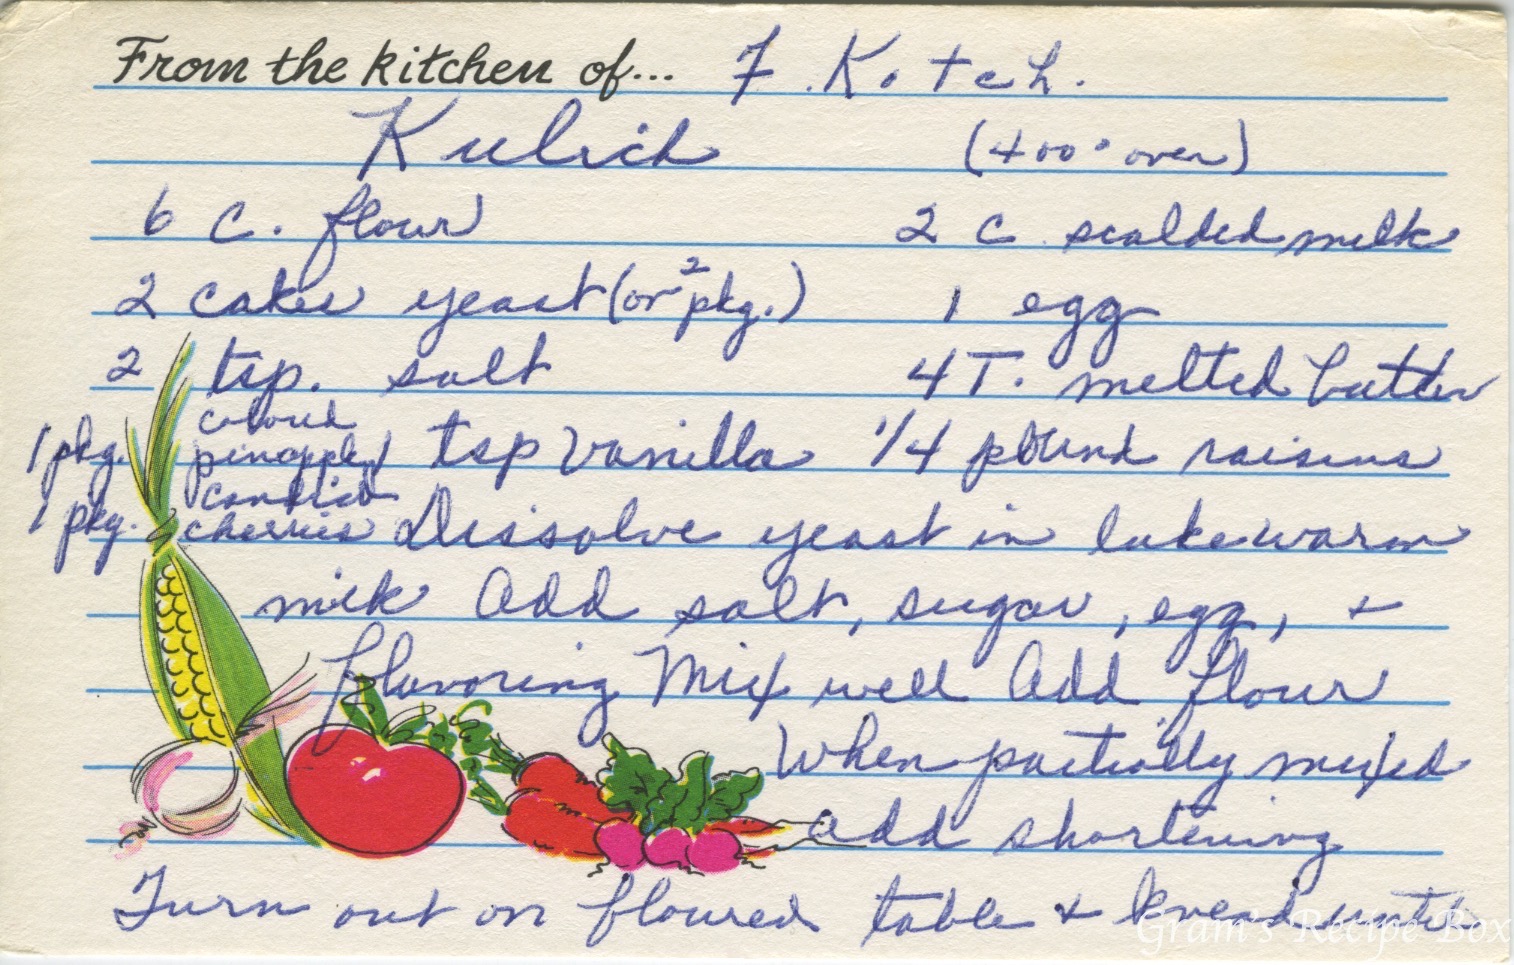 From the kitchen of... F. Kotch.
Kulich (400° oven)
6 c. flour 2 c scalded milk
2 cakes yeast (or 2 pkg.) 1 egg
2 tsp. salt 4 T. melted butter
1 pkg. coloured pineapple 1 tsp vanilla 1/4 pound raisins
1 pkg. candied cherries Dissolve yeast in lukewarm
milk Add salt, sugar, egg, +
flavoring Mix well Add flour
When partially mixed
add shortening
Turn out on floured table + knead until
Gram's Recipe Box